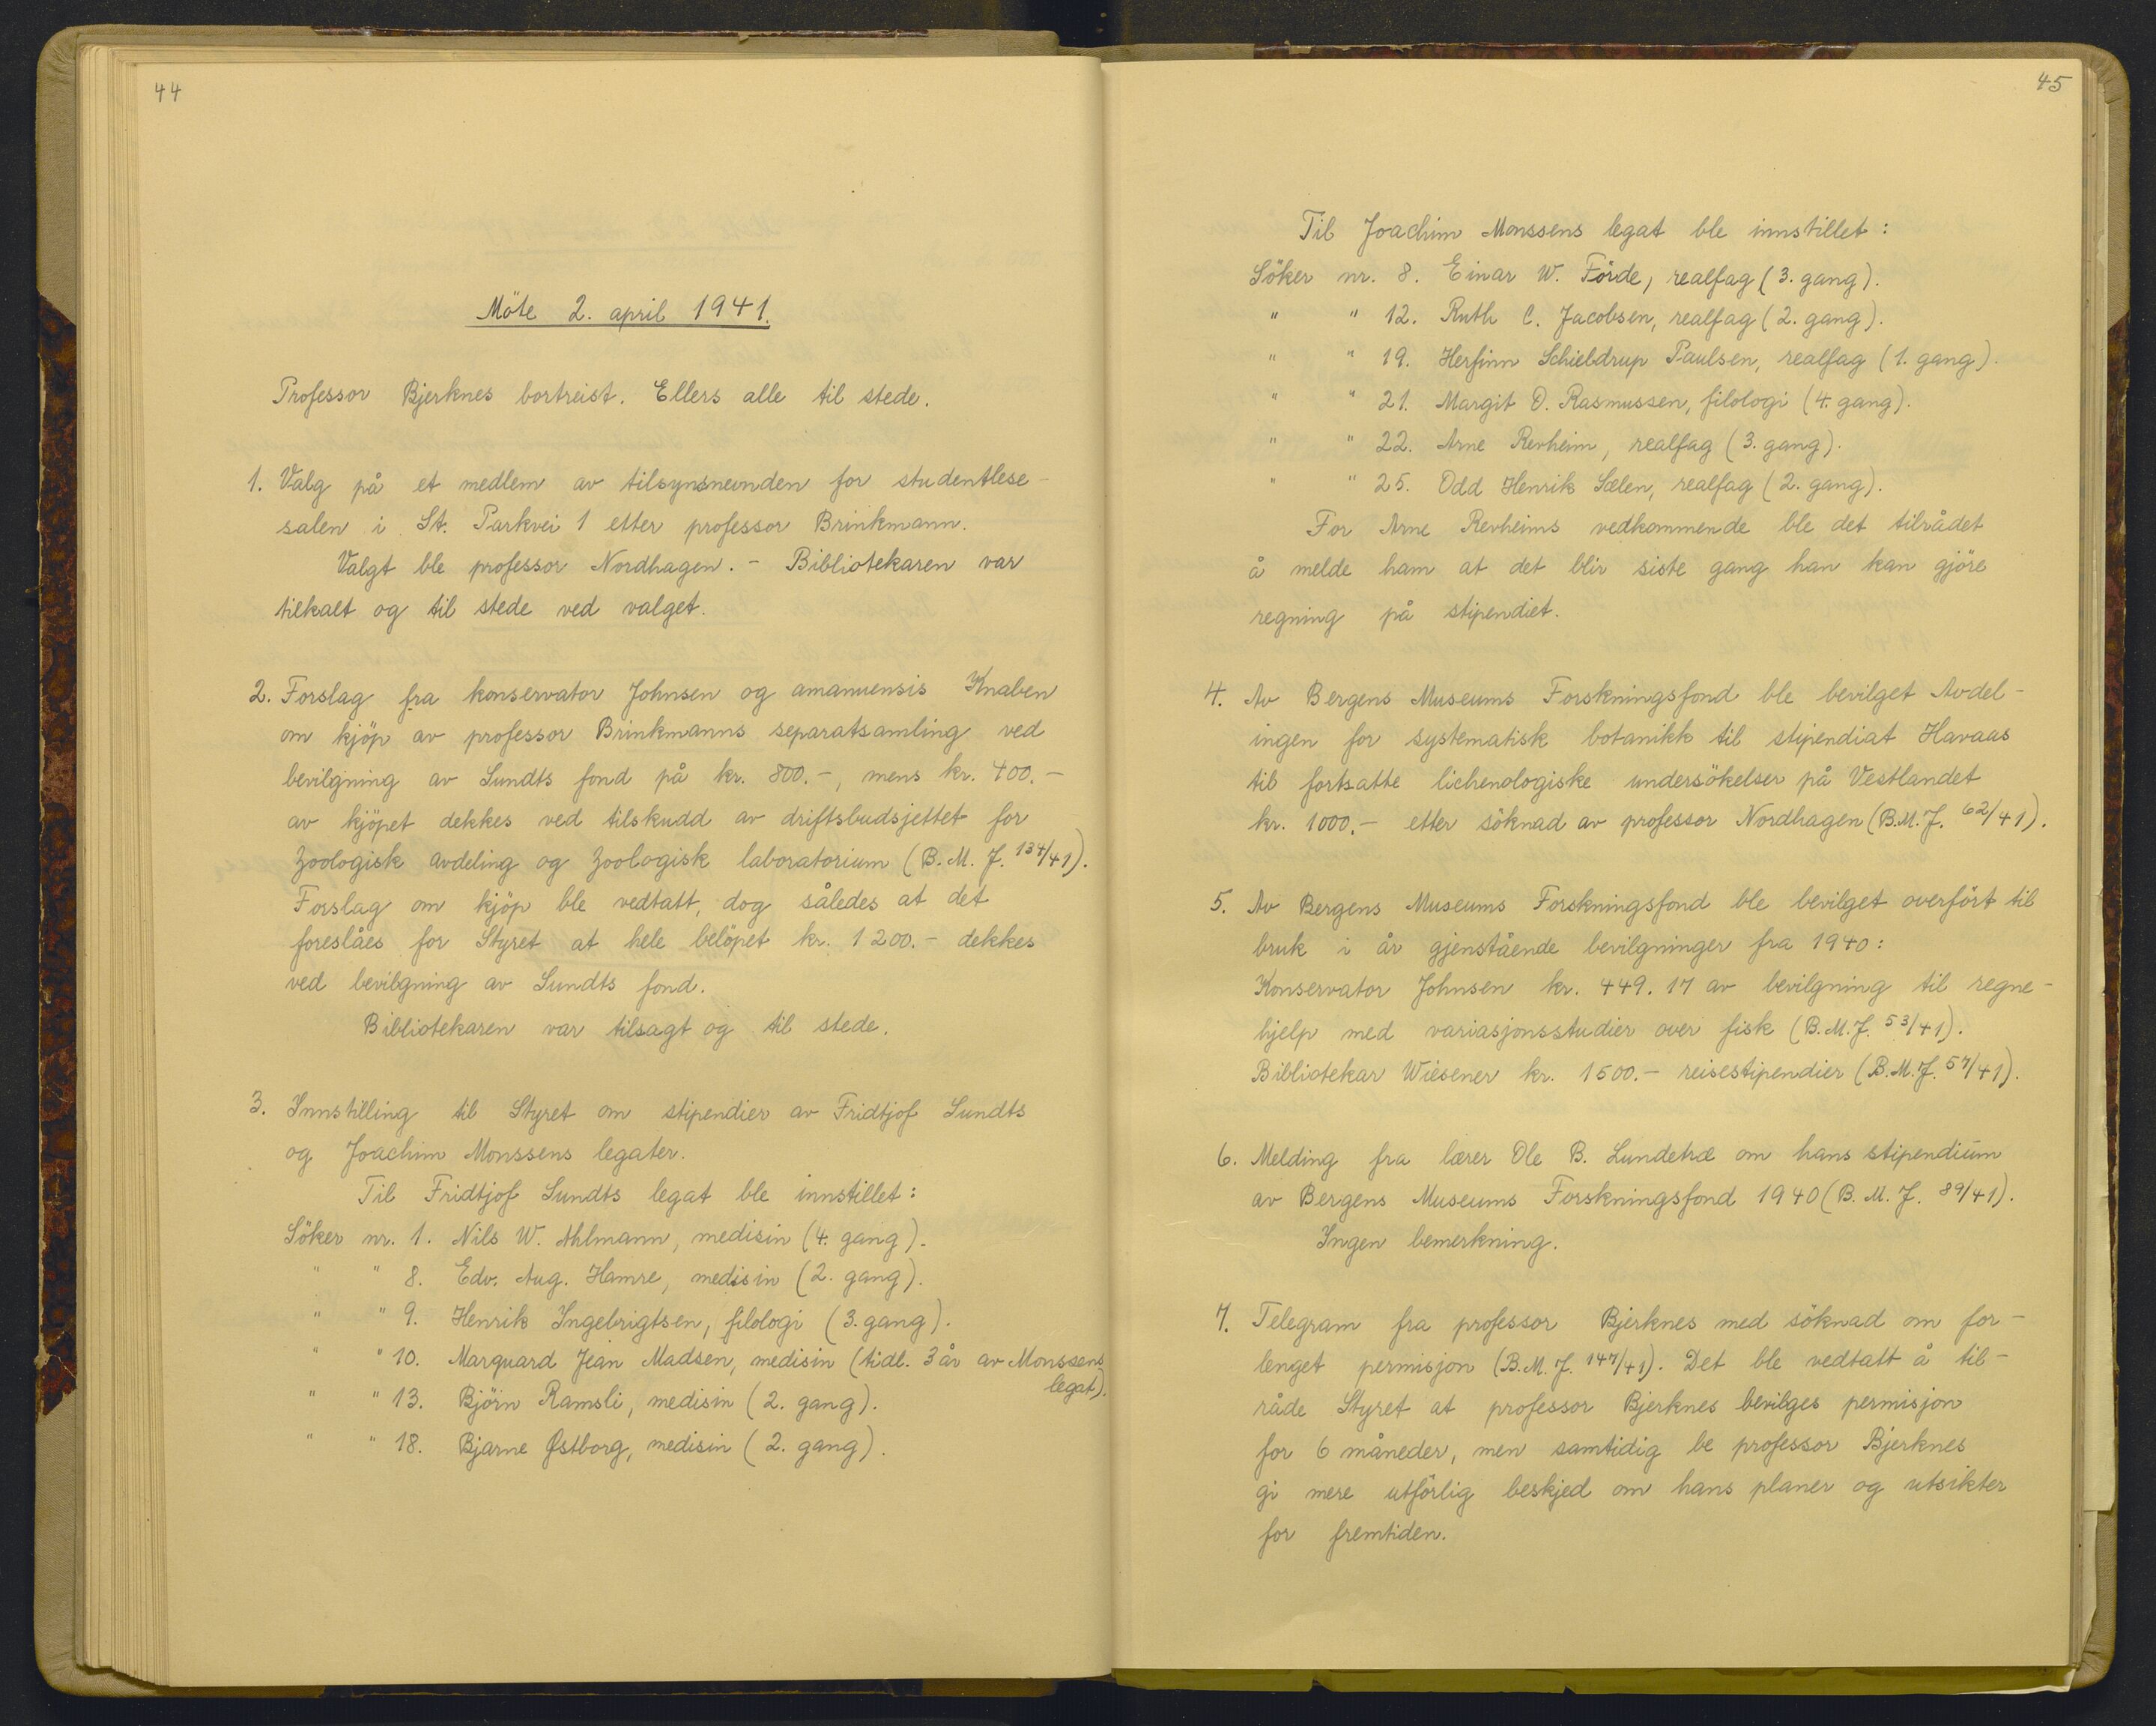 44
Möte 2. april 1941.
Professor Bjerknes bortreist. Ellers alle til stede.
1. Valg på et medlem av tilsynsnevnden for studentlese-
salen i St. Parkvei 1 etter professor Brinkmann.
Valgt ble professor Nordhagen. - Bibliotekaren var
tilkalt og til stede ved valget.
2. Forslag fra konservator Johnsen og amanuensis Knaben
om kjöp av professor Brinkmanns separatsamling ved
bevilgning av Sundts fond på kr. 800.-, mens kr. 400.-
av kjöpet dekkes ved tilskudd av driftsbudsjettet for
Zoologisk avdeling og Zoologisk laboratorium (B.M.J. 134/41).
Forslag om kjöp ble vedtatt, dog således at det
foreslåes for Styret at hele belöpet kr. 1200.- dekkes
ved bevilgning av Sundts fond.
Bibliotekaren var tilsagt og til stede.
3. Innstilling til Styret om stipendier av Fridtjof Sundts
og Joachim Monssens legater.
Til Fridtjof Sundts legat ble innstillet:
Söker nr. 1. Nils W. Ahlmann, medisin (4. gang).
" " 8. Edv. Aug. Hamre, medisin (2. gang).
" " 9. Henrik Ingebrigtsen, filologi (3. gang).
" " 10. Marquard Jean Madsen, medisin (tidl. 3 år av Monssens
legat).
" " 13. Björn Ramsli, medisin (2. gang).
" " 18. Bjarne Østborg, medisin (2. gang).
45
Til Joachim Monssens legat ble innstillet:
Söker nr. 8. Einar W. Förde, realfag (3. gang).
" " 12. Ruth C. Jacobsen, realfag (2. gang).
" " 19. Herfinn Schieldrup Paulsen, realfag (1. gang).
" " 21. Margit O. Rasmussen, filologi (4. gang).
" " 22. Arne Revheim, realfag (3. gang).
" " 25. Odd Henrik Sælen, realfag (2. gang).
For Arne Revheims vedkommende ble det tilrådet
å melde ham at det blir siste gang han kan gjöre
regning på stipendiet.
4. Av Bergens Museums Forskningsfond ble bevilget Avdel-
ingen for systematisk botanikk til stipendiat Havaas
til fortsatte lichenologiske undersökelser på Vestlandet
kr. 1000.- etter söknad av professor Nordhagen (B.M.J. 62/41).
5. Av Bergens Museums Forskningsfond ble bevilget overfört til
bruk i år gjenstående bevilgninger fra 1940:
Konservator Johnsen kr. 449.17 av bevilgning til regne-
hjelp med variasjonsstudier over fisk (B.M.J. 53/41).
Bibliotekar Wiesener kr. 1500.- reisestipendier (B.M.J. 57/41).
6. Melding fra lærer Ole B. Lundetræ om hans stipendium
av Bergens Museums Forskningsfond 1940 (B.M.J. 89/41).
Ingen bemerkning.
7. Telegram fra professor Bjerknes med söknad om for-
lenget permisjon (B.M.J. 147/41). Det ble vedtatt å til-
råde Styret at professor Bjerknes bevilges permisjon
for 6 måneder, men samtidig be professor Bjerknes
gi mere utförlig beskjed om hans planer og utsikter
for fremtiden.